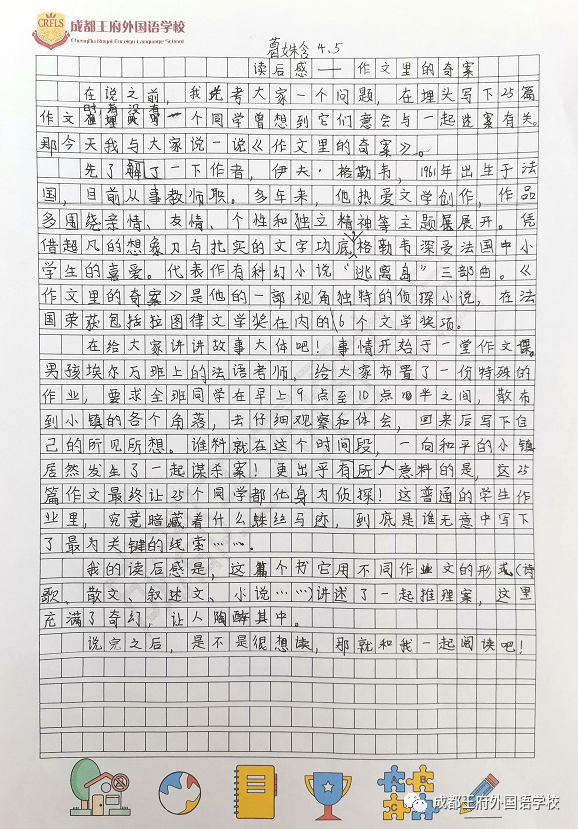 CRFLS
成都王府外国语学校
ChengDu Royal Foreign Language School
葛姝含 4.5
读后感——作文里的奇案
在说之前，我先考大家一个问题，在埋头写下25篇
作文时，有没有一个同学曾想到它们意会与一起迷案有关。
那今天我与大家说一说《作文里的奇案》。
先了解了一下作者，伊夫·格勒韦，1961年出生于法
国，目前从事教师职。多年来，他热爱文学创作，作品
多围绕亲情、友情、个性和独立精神等主题展开。凭
借超凡的想象力与扎实的文字功底，格勒韦深受法国中小
学生的喜爱。代表作有科幻小说“逃离岛”三部曲。《
作文里的奇案》是他的一部视角独特的侦探小说，在法
国荣获包括拉图律文学奖在内的16个文学奖项。
在给大家讲讲故事大体吧！事情开始于一堂作文课。
男孩埃尔万班上的法语老师，给大家布置了一份特殊的
作业，要求全班同学在早上9点至10点半之间，散布
到小镇的各个角落，去仔细观察和体会，回来后写下自
己的所见所想。谁料就在这个时间段，一向和平的小镇
居然发生了一起谋杀案！更出乎有所人意料的是，这25
篇作文最终让25个同学都化身为侦探！这普通的学生作
业里，究竟暗藏着什么蛛丝马迹，到底是谁无意中写下
了最为关键的线索……。
我的读后感是，这个书它用不同作文的形式（诗
歌、散文、叙述文、小说……）讲述了一起推理案，这里
充满了奇幻，让人陶醉其中。
说完之后，是不是很想读，那就和我一起阅读吧！
A B
C
成都王府外国语学校